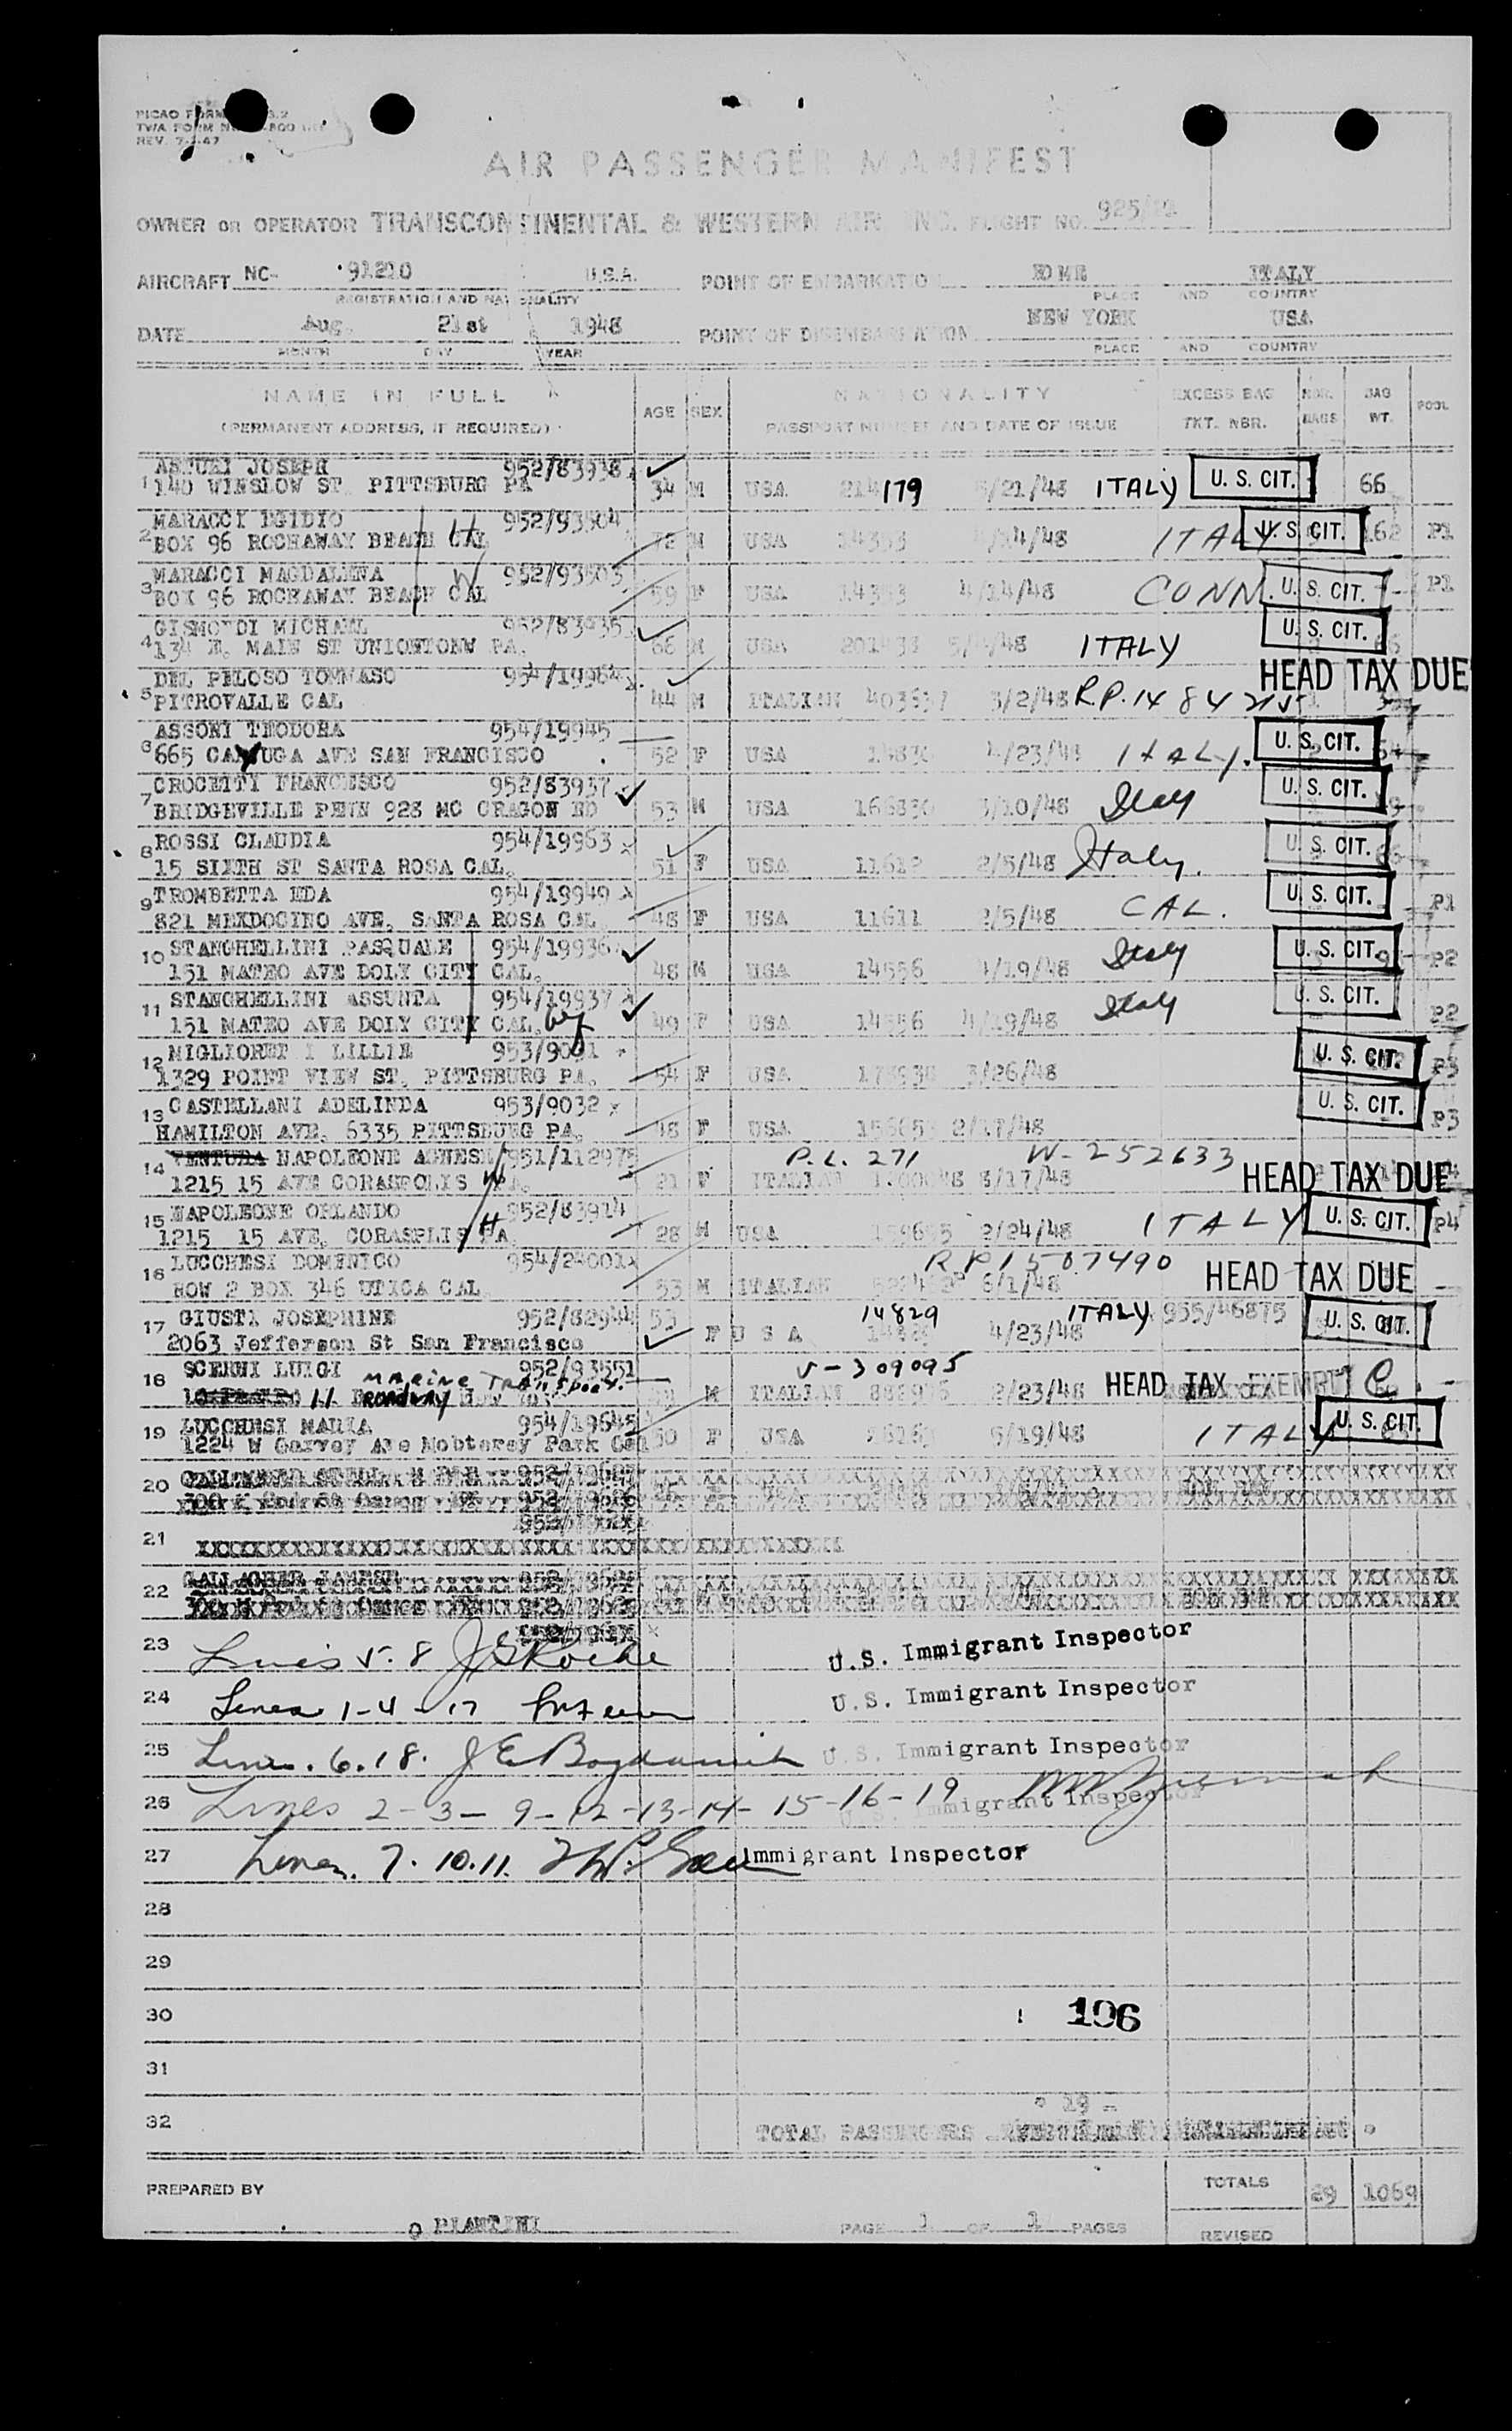 PICAO FORM
TWA FORM
REV. 7-1-47
AIR PASSENGER MANIFEST
OWNER OR OPERATOR TRANSCONTINENTAL & WESTERN AIR, INC. FLIGHT NO. 925/19
AIRCRAFT NC- 91210 U.S.A. POINT OF EMBARKATION ROME ITALY
REGISTRATION AND NATIONALITY PLACE AND COUNTRY
DATE Aug. 21st 1948 POINT OF DISEMBARKATION NEW YORK USA
MONTH DAY YEAR PLACE AND COUNTRY
NAME IN FULL AGE SEX NATIONALITY EXCESS BAG NBR. BAG POOL
(PERMANENT ADDRESS, IF REQUIRED) PASSPORT NUMBER AND DATE OF ISSUE TKT. NBR. BAGS WT.
JOSEPH 952/83938
1 140 WINSLOW ST. PITTSBURG PA 34 M USA 214179 5/21/48 ITALY U. S. CIT. 66
MARACCI EGIDIO 952/93504
2 BOX 96 ROCHAWAY BEACH CAL H 72 M USA 14353 4/14/48 ITALY U. S. CIT. 162 P1
MARACCI MAGDALENA 952/93503
3 BOX 96 ROCHAWAY BEACH CAL W 59 F USA 14353 4/14/48 CONN. U. S. CIT. P1
GISMONDI MICHAEL 952/83935
4 134 E. MAIN ST UNIONTONW PA. 66 M USA /48 ITALY U. S. CIT.
DEL PELOSO TOMMASO 954/19964
HEAD TAX DUE
5 PITROVALLE CAL 44 M ITALIAN 403637 3/2/48 R.P. 14 84 215
ASSONI TEODORA 954/19945
6 665 CAYUGA AVE SAN FRANCISCO 52 F USA 14830 4/23/48 ITALY. U. S. CIT.
CROCETTI FRANCESCO 952/83937
7 BRIDGEVILLE PENN 928 MC CRAGON RD 53 M USA 166830 3/10/48 Italy U. S. CIT.
8 ROSSI CLAUDIA 954/19963
15 SIXTH ST SANTA ROSA CAL. 51 F USA 11612 2/5/48 Italy. U. S. CIT.
9 TROMBETTA EDA 954/19949
821 MENDOCINO AVE, SANTA ROSA CAL 48 F USA 11611 2/5/48 CAL. U. S. CIT. P1
10 STANGHELLINI PASQUALE 954/19936
151 MATEO AVE DOLY CITY CAL. 48 M USA 14556 4/19/48 Italy U. S. CIT. P2
11 STANGHELLINI ASSUNTA 954/19937
151 MATEO AVE DOLY CITY CAL. 49 F USA 14556 4/19/48 Italy U. S. CIT. P2
12 MIGLIORET I LILLIE 953/9031
1329 POINT VIEW ST. PITTSBURG PA. 54 F USA 3/26/48 U. S. CIT. P3
13 CASTELLANI ADELINDA 953/9032
HAMILTON AVE. 6335 PITTSBURG PA. 48 F USA 2/17/48 U. S. CIT. P3
14 VENTURA NAPOLEONE AGNESE 951/112975 P.L. 271 W-252633
1215 15 AVE CORASPOLIS W 21 F ITALIAN 3/17/48 HEAD TAX DUE
15 NAPOLEONE ORLANDO 952/83914
1215 15 AVE, CORASPLIS PA H 28 M USA 159695 2/24/48 ITALY U. S. CIT. P4
16 LUCCHESI DOMENICO 954/24001 R P 1507490
ROW 2 BOX 346 UTICA CAL 53 M ITALIAN 6/1/48 HEAD TAX DUE
17 GIUSTI JOSEPHINE 952/82944 53 14829 ITALY 955/46875
2063 Jefferson St San Francisco F U S A 4/23/48 U. S. CIT.
18 SCERNI LUIGI 952/93551 V-309095
MARINE TRANSPORT. 11 BROADWAY M ITALIAN 2/23/48 HEAD TAX EXEMPT C
19 LUCCHESI MARIA 954/19645
1224 W Garvey Ave Mobterey Park Cal 50 F USA 5/19/48 ITALY U. S. CIT.
20
21
22 GALLAGHER
23 Lines 5-8 U.S. Immigrant Inspector
24 Lines 1-4-17 U.S. Immigrant Inspector
25 Lines. 6.18. U.S. Immigrant Inspector
26 Lines 2-3-9-12-13-14-15-16-19 U.S. Immigrant Inspector
27 Lines. 7.10.11. Immigrant Inspector
28
29
30 196
31
32 19
TOTAL PASSENGERS
PREPARED BY TOTALS 29 1069
O PIANTINI PAGE 1 OF 1 PAGES REVISED